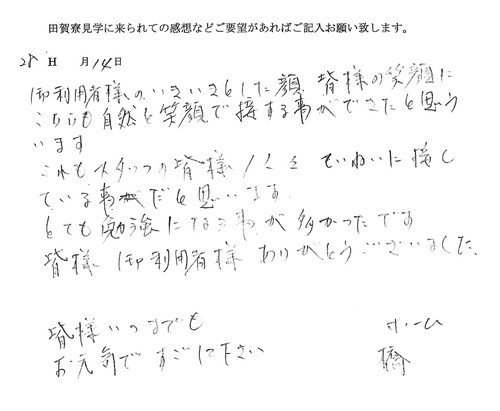 田賀寮見学に来られての感想などご要望があればご記入お願い致します。
28 H 月14日
御利用者様のいきいきとした顔 皆様の笑顔に
こちらも自然と笑顔で接する事ができたと思う
います
これもスタッフの皆様 ていねいに接し
ている事がだと思います
とても勉強になる事が多かったです
皆様 御利用者様 ありがとうございました。
皆様いつまでも
お元気ですごして下さい
ホーム
橋